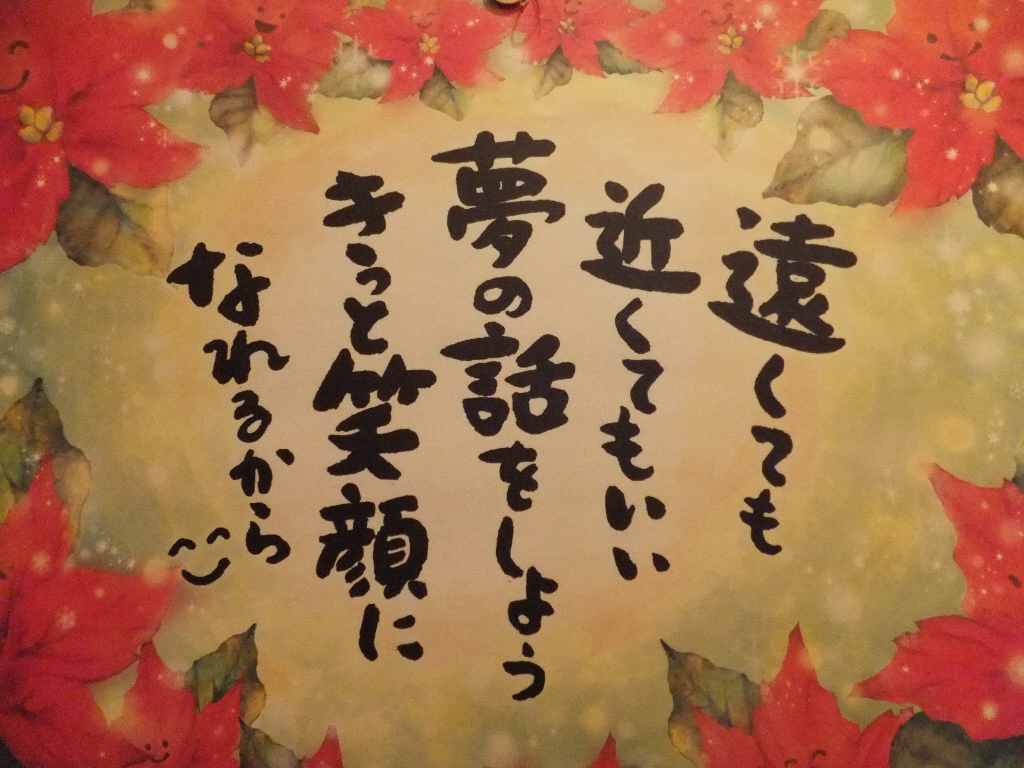 遠くても
近くてもいい
夢の話をしよう
きっと笑顔に
なれるから